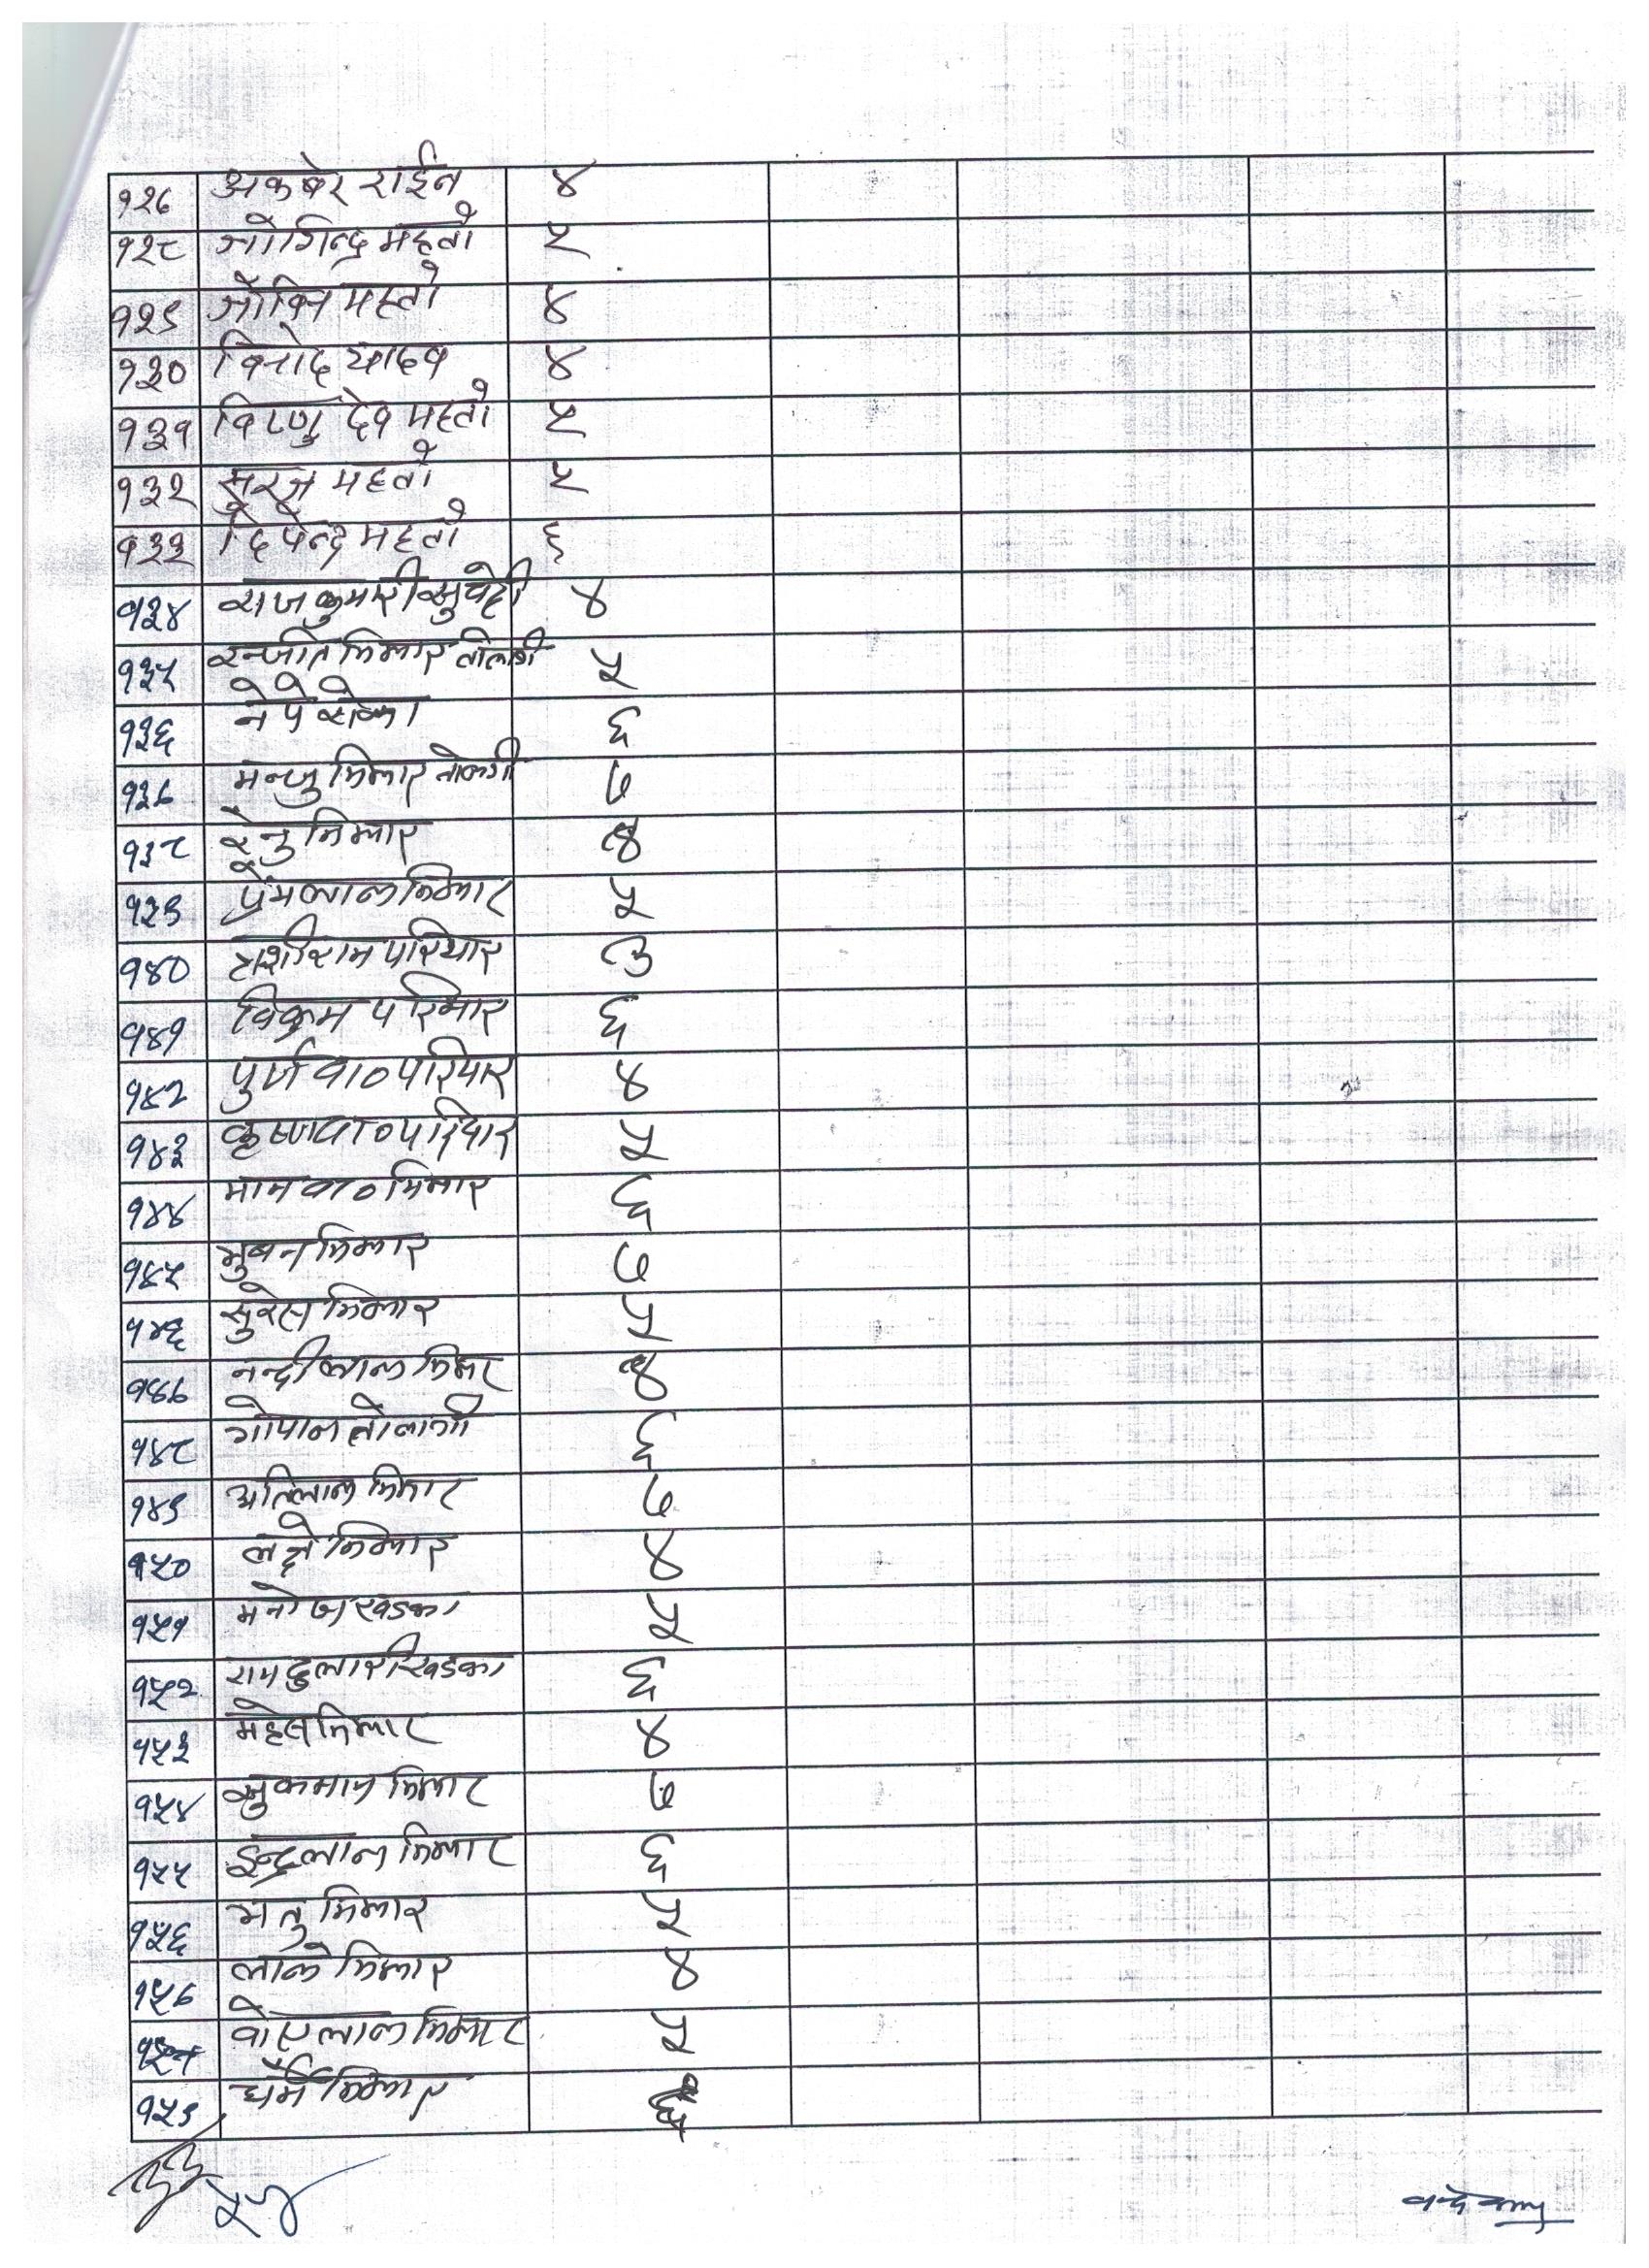 १२७ अकबेर राईन ४
१२८ जोगिन्द्र महतो ५
१२९ गोविन महतो ४
१३० विनोद यादव ४
१३१ विष्णु देव महतो ५
१३२ सुरज महतो ५
१३३ दिपेन्द्र महतो ६
१३४ राजकुमारी सुवेदी ४
१३५ रन्जित मिजार तोलाङ्गी ५
१३६ रोका ६
१३७ मन्जु मिजार तोलाङ्गी ७
१३८ रेनु मिजार ४
१३९ प्रेमलाल मिजार ५
१४० काशीराम परियार ३
१४१ विक्रम परियार ६
१४२ पुर्ण वा० परियार ४
१४३ कृष्ण वा० परियार ५
१४४ मान वा० मिजार ६
१४५ भुवन मिजार ७
१४६ सुरेस मिजार ५
१४७ नन्दीलाल मिजार ४
१४८ गोपाल तोलाङ्गी ६
१४९ मिजार ७
१५० मिजार ४
१५१ मनोज खडका ५
१५२ रामदुलारी खडका ६
१५३ महेस मिजार ४
१५४ सुकमान मिजार ७
१५५ इन्द्रलाल मिजार ६
१५६ मिजार ५
१५७ लाले मिजार ४
१५८ मिजार ५
१५९ धर्म मिजार ६